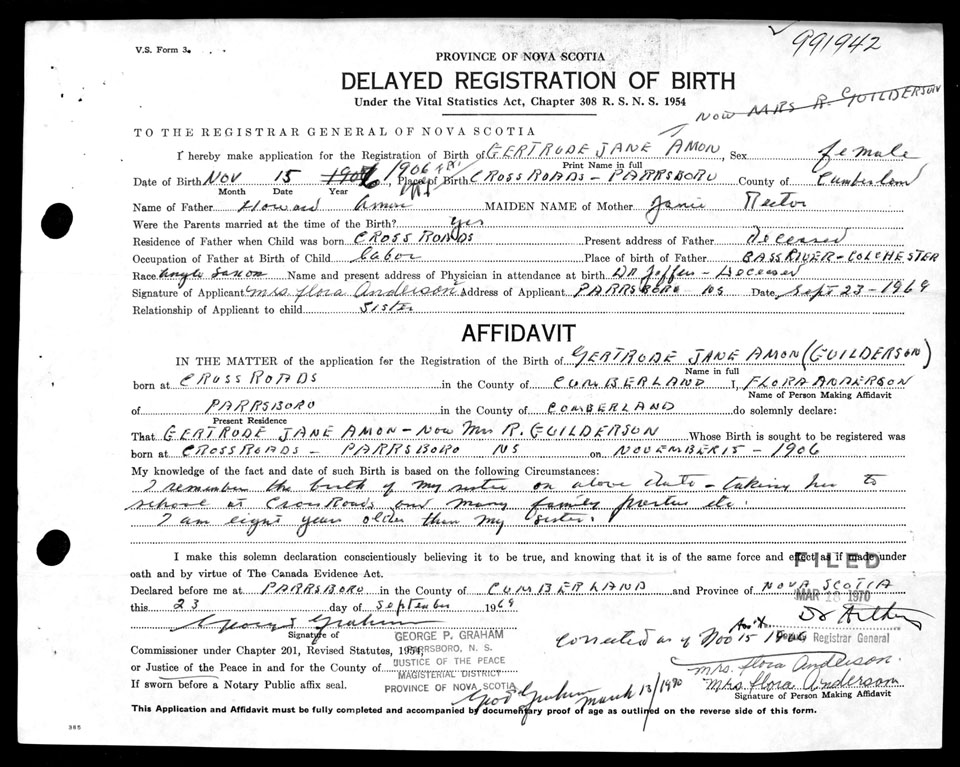 991942
V.S. Form 3.
PROVINCE OF NOVA SCOTIA
DELAYED REGISTRATION OF BIRTH
Under the Vital Statistics Act, Chapter 308 R. S. N. S. 1954
NOW MRS R. GUILDERSON
TO THE REGISTRAR GENERAL OF NOVA SCOTIA
I hereby make application for the Registration of Birth of GERTRUDE JANE AMON, Sex female
Print Name in full
Date of Birth NOV 15 1906, Place of Birth CROSS ROADS - PARRSBORO County of Cumberland
Month Date Year
Name of Father Howard Amon MAIDEN NAME of Mother Janie Rector
Were the Parents married at the time of the Birth? Yes
Residence of Father when Child was born CROSS ROADS Present address of Father Deceased
Occupation of Father at Birth of Child Labor Place of birth of Father BASS RIVER - COLCHESTER
Race Anglo Saxon Name and present address of Physician in attendance at birth DR Jeffers - Deceased
Signature of Applicant Mrs Flora Anderson Address of Applicant PARRSBORO NS Date Sept 23 - 1969
Relationship of Applicant to child Sister
AFFIDAVIT
IN THE MATTER of the application for the Registration of the Birth of GERTRUDE JANE AMON (GUILDERSON)
Name in full
born at CROSS ROADS in the County of CUMBERLAND I, FLORA ANDERSON
Name of Person Making Affidavit
of PARRSBORO in the County of CUMBERLAND do solemnly declare:
Present Residence
That GERTRUDE JANE AMON - NOW Mrs R. GUILDERSON Whose Birth is sought to be registered was
born at CROSS ROADS - PARRSBORO NS on NOVEMBER 15 - 1906
My knowledge of the fact and date of such Birth is based on the following Circumstances:
I remember the birth of my sister on above date - taking her to
school at Cross Roads and many family parties etc.
I am eight years older than my sister.
I make this solemn declaration conscientiously believing it to be true, and knowing that it is of the same force and effect as if made under
oath and by virtue of The Canada Evidence Act.
FILED
Declared before me at PARRSBORO in the County of CUMBERLAND and Province of NOVA SCOTIA
MAR 1970
this 23 day of September 1969
George Graham
Signature of
GEORGE P. GRAHAM
Corrected as of Nov 15 1906
Registrar General
Commissioner under Chapter 201, Revised Statutes, 1954,
PARRSBORO, N. S.
or Justice of the Peace in and for the County of
JUSTICE OF THE PEACE
Mrs. Flora Anderson.
MAGISTERIAL DISTRICT
Mrs Flora Anderson
If sworn before a Notary Public affix seal.
PROVINCE OF NOVA SCOTIA
Signature of Person Making Affidavit
Geo P Graham March 13/1970
This Application and Affidavit must be fully completed and accompanied by documentary proof of age as outlined on the reverse side of this form.
365